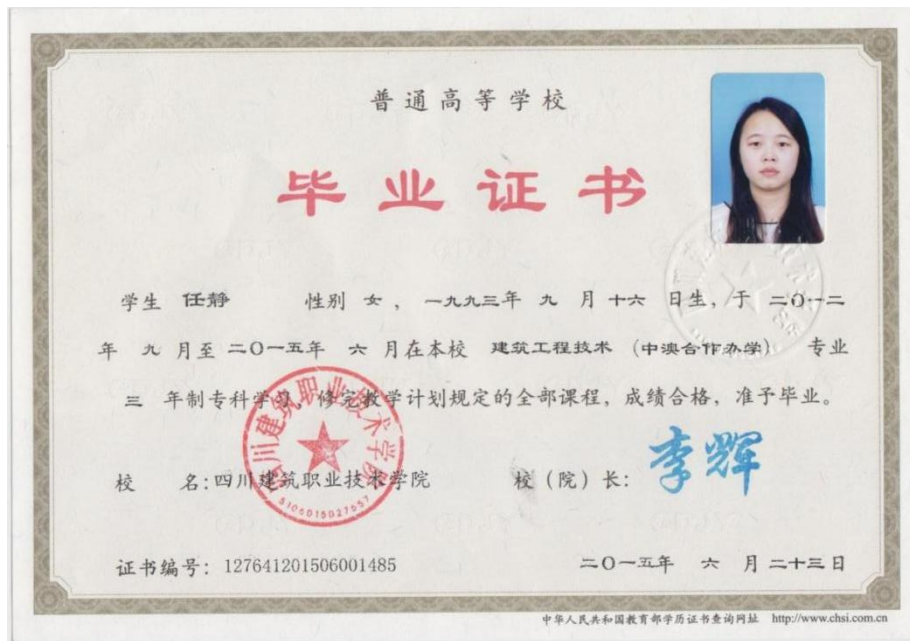 普通高等学校
毕业证书
学生 任静 性别 女，一九九三年 九 月 十六 日生，于 二〇一二
年 九 月至 二〇一五年 六 月在本校 建筑工程技术 （中澳合作办学） 专业
三 年制专科学习，修完教学计划规定的全部课程，成绩合格，准予毕业。
四川建筑职业技术学院
5106015027657
校 名：四川建筑职业技术学院 校（院）长：李辉
证书编号：127641201506001485 二〇一五年 六 月 二十三日
中华人民共和国教育部学历证书查询网址 http://www.chsi.com.cn